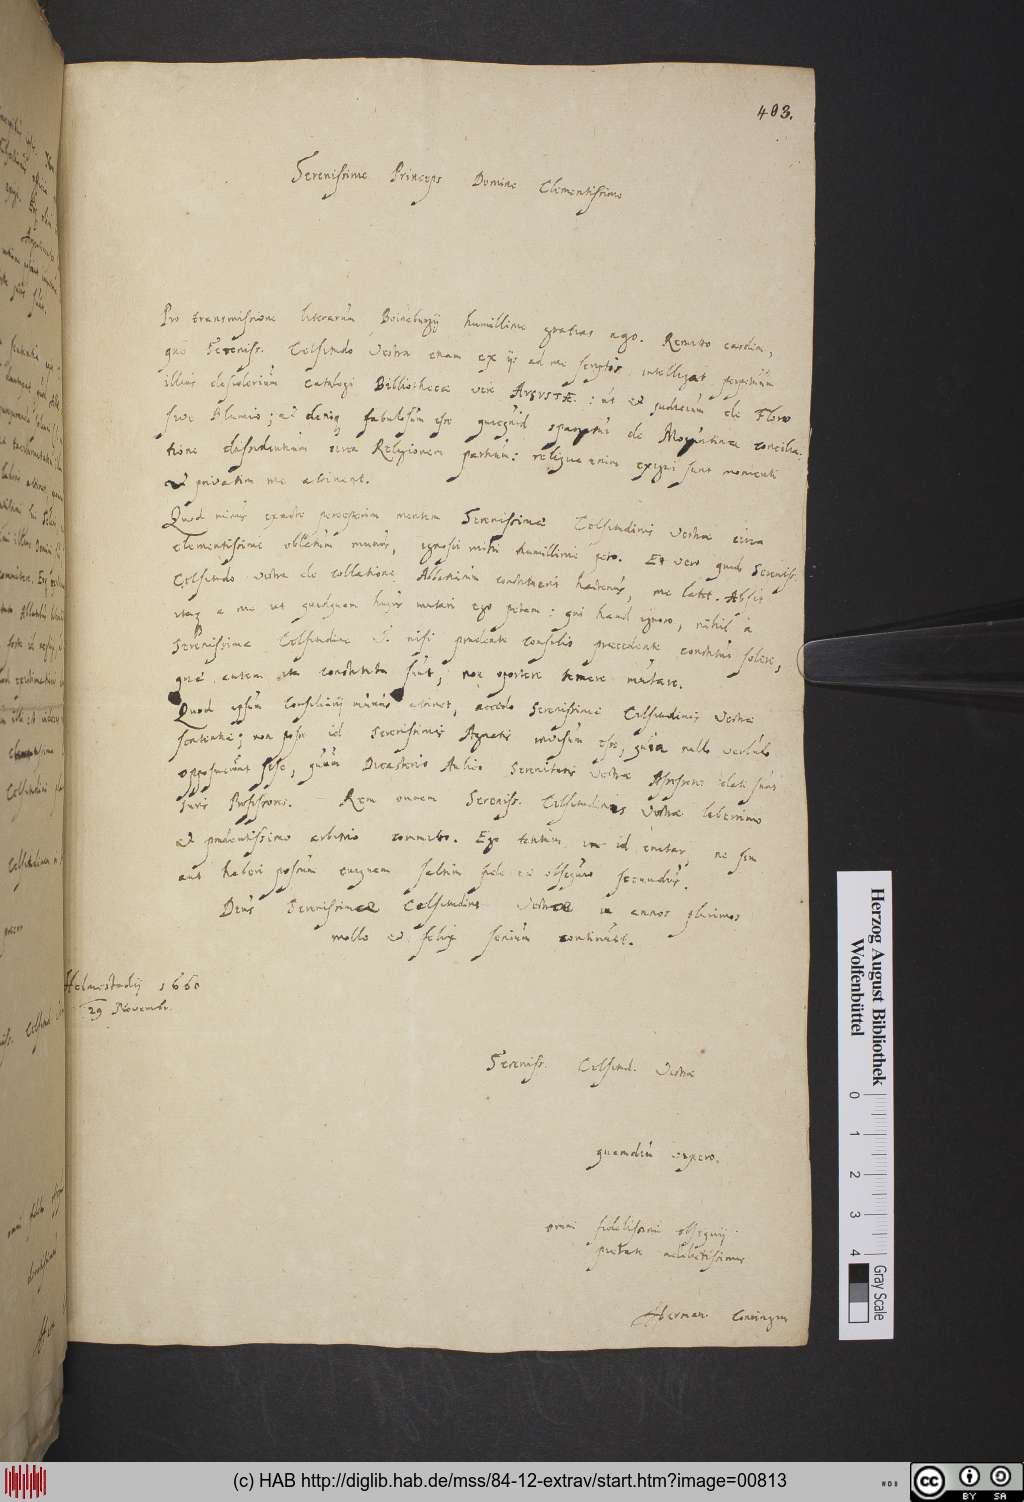 483.
Serenissime Princeps Domine Clementissime
Pro transmissione literarum Boineburgij humillime gratias ago. Remitto easdem,
quo Sereniss. Celsitudo Vestra etiam ex ijs ad me scriptis intelligat perpetuum
illius desiderium Catalogi Bibliothecæ vere AVGVSTÆ: ut et judicium de Floro
sive Blumio; ac deniq fabulosum esse quicquid spargitur de Moguntinæ concilia-
tione dissidentium circa Religionem partium: reliqua enim exigui sunt momenti
et privatim me attinent.
Quod minus exacte perceperim mentem Serenissimæ Celsitudinis Vestræ circa
clementissime oblatum munus, ignosci mihi humillime peto. Et vero quid Sereniss.
Celsitudo Vestra de collatione constituerit hactenus, me latet. Absit
itaq a me ut quidquam hujus mutari ego petam: qui haud ignoro, nihil a
Serenissima Celsitudine V. nisi prudente consilio præcedente constitui solere,
quæ autem ita constituta sunt, non oportere temere mutare.
Quod ipsum Consiliarij munus attinet, accedo Serenissimæ Celsitudinis Vestræ
sententiæ; non posse id Serenissimis Agnatis invisum esse, quia nullo verbulo
opposuerunt sese, quum Dicasterio Aulico Serenitatis Vestræ Assessores delati sunt
Juris Professores. Rem omnem Sereniss. Celsitudinis Vestræ liberrimo
et prudentissimo arbitrio committo. Ego tantum id enitar, ne sim
aut haberi possim cuiquam saltim fide et obsequio secundus.
Deus Serenissimæ Celsitudini Vestræ in annos plurimos
molle et felix senium continuet.
Helmestadij 1660
29 Novembr.
Sereniss. Celsitud. Vestræ
quamdiu vixero.
omni fidelissimi obsequij
pietate
Herman Conringius
Herzog August Bibliothek
Wolfenbüttel
0 1 2 3 4
Gray Scale
(c) HAB http://diglib.hab.de/mss/84-12-extrav/start.htm?image=00813
WDB
cc BY SA